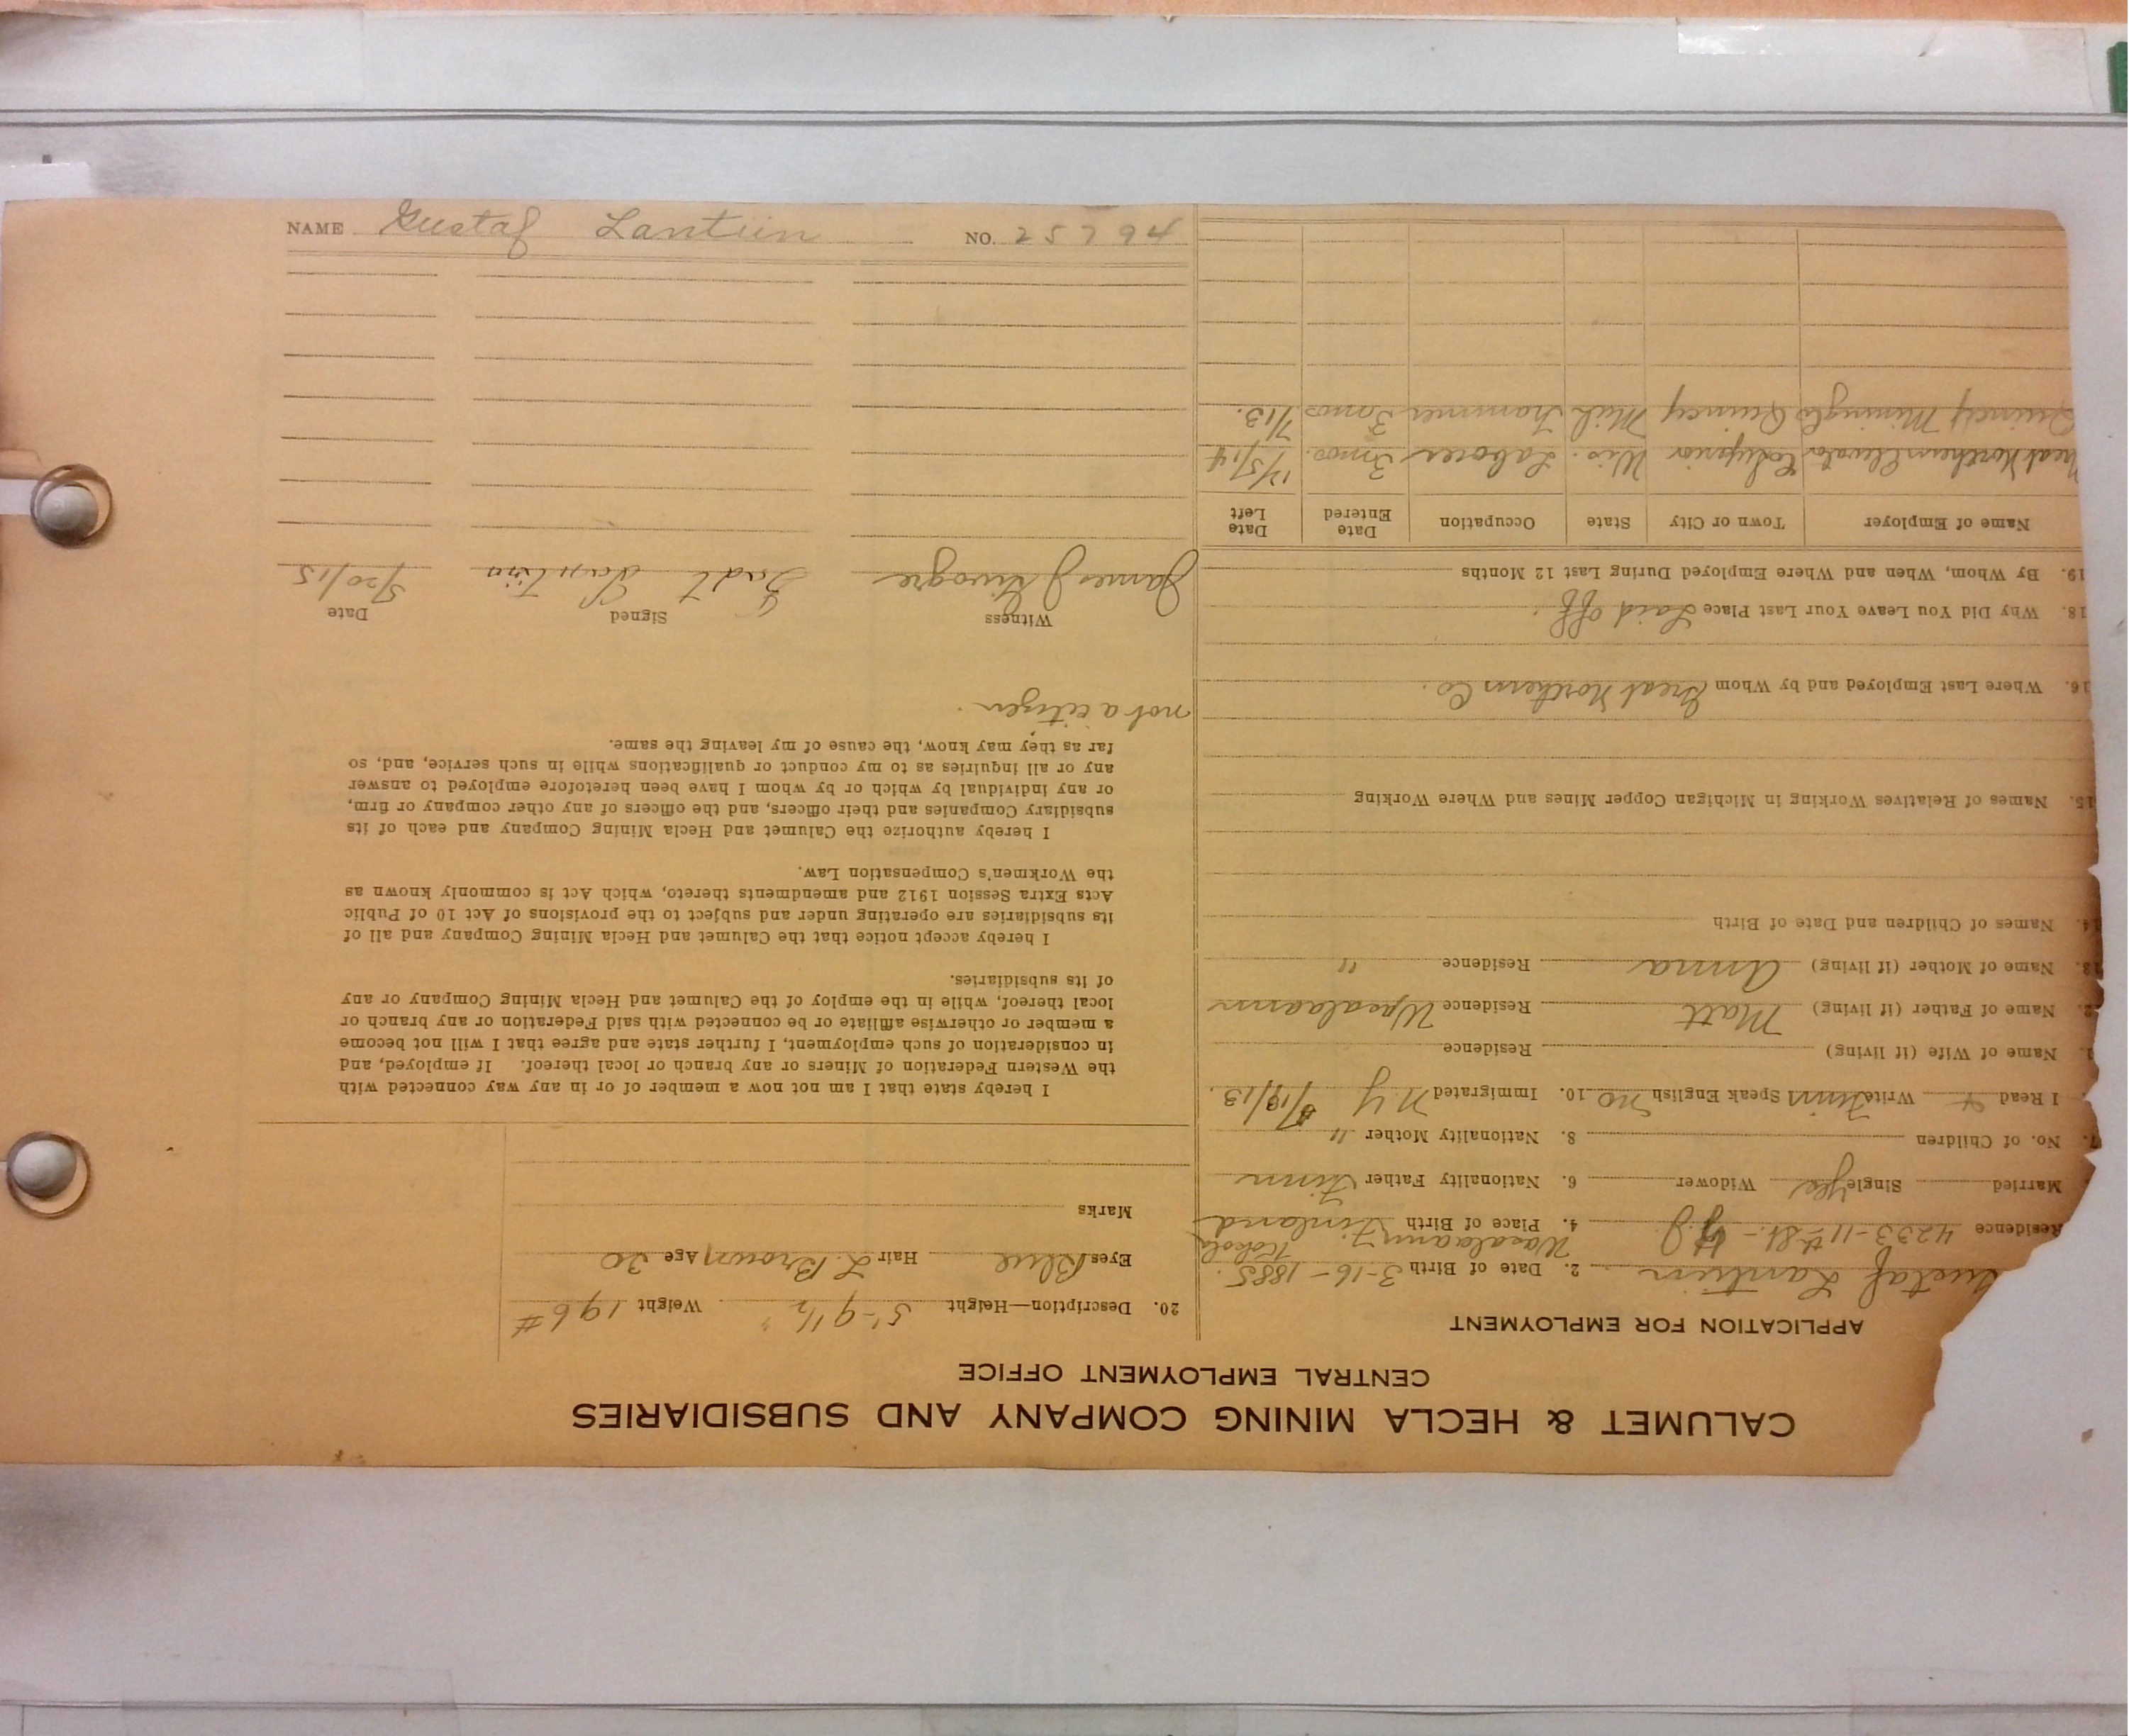 CALUMET & HECLA MINING COMPANY AND SUBSIDIARIES
CENTRAL EMPLOYMENT OFFICE
APPLICATION FOR EMPLOYMENT
Gustaf Lantiin 2. Date of Birth 3-16-1885.
Wasalaani Kokola
Residence 4233-11-th St. - 4. Place of Birth Finland
Married Single Yes Widower 6. Nationality Father Finn
7. No. of Children 8. Nationality Mother "
I Read & Write Finn Speak English no 10. Immigrated N.Y. /13.
1. Name of Wife (if living) Residence
2. Name of Father (if living) Matt Residence Wasalaani
13. Name of Mother (if living) Anna Residence "
14. Names of Children and Date of Birth
15. Names of Relatives Working in Michigan Copper Mines and Where Working
16. Where Last Employed and by Whom Great Northern Co.
18. Why Did You Leave Your Last Place Laid off.
19. By Whom, When and Where Employed During Last 12 Months
Name of Employer Town or City State Occupation Date Entered Date Left
Great Northern Elevator Co Superior Wis. Laborer 3 mos. 12/5/14
Quincy Mining Co Quincy Mich Trammer 3 mos 7/13.
20. Description—Height 5'-9 1/2" Weight 196 #
Eyes Blue Hair L. Brown Age 30
Marks
I hereby state that I am not now a member of or in any way connected with
the Western Federation of Miners or any branch or local thereof. If employed, and
in consideration of such employment, I further state and agree that I will not become
a member or otherwise affiliate or be connected with said Federation or any branch or
local thereof, while in the employ of the Calumet and Hecla Mining Company or any
of its subsidiaries.
I hereby accept notice that the Calumet and Hecla Mining Company and all of
its subsidiaries are operating under and subject to the provisions of Act 10 of Public
Acts Extra Session 1912 and amendments thereto, which Act is commonly known as
the Workmen's Compensation Law.
I hereby authorize the Calumet and Hecla Mining Company and each of its
subsidiary Companies and their officers, and the officers of any other company or firm,
or any individual by which or by whom I have been heretofore employed to answer
any or all inquiries as to my conduct or qualifications while in such service, and, so
far as they may know, the cause of my leaving the same.
not a citizen.
Witness Signed Date
James J 5/20/15
NAME Gustaf Lantiin NO. 25794